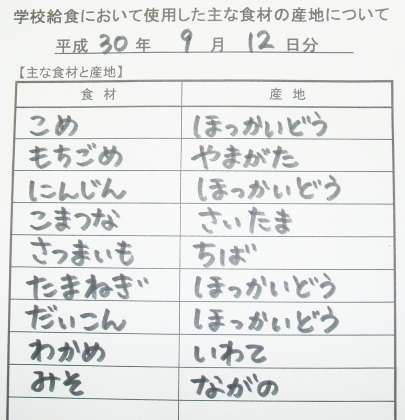 学校給食において使用した主な食材の産地について
平成 30 年 9 月 12 日分
【主な食材と産地】
食材 産地
こめ ほっかいどう
もちごめ やまがた
にんじん ほっかいどう
こまつな さいたま
さつまいも ちば
たまねぎ ほっかいどう
だいこん ほっかいどう
わかめ いわて
みそ ながの